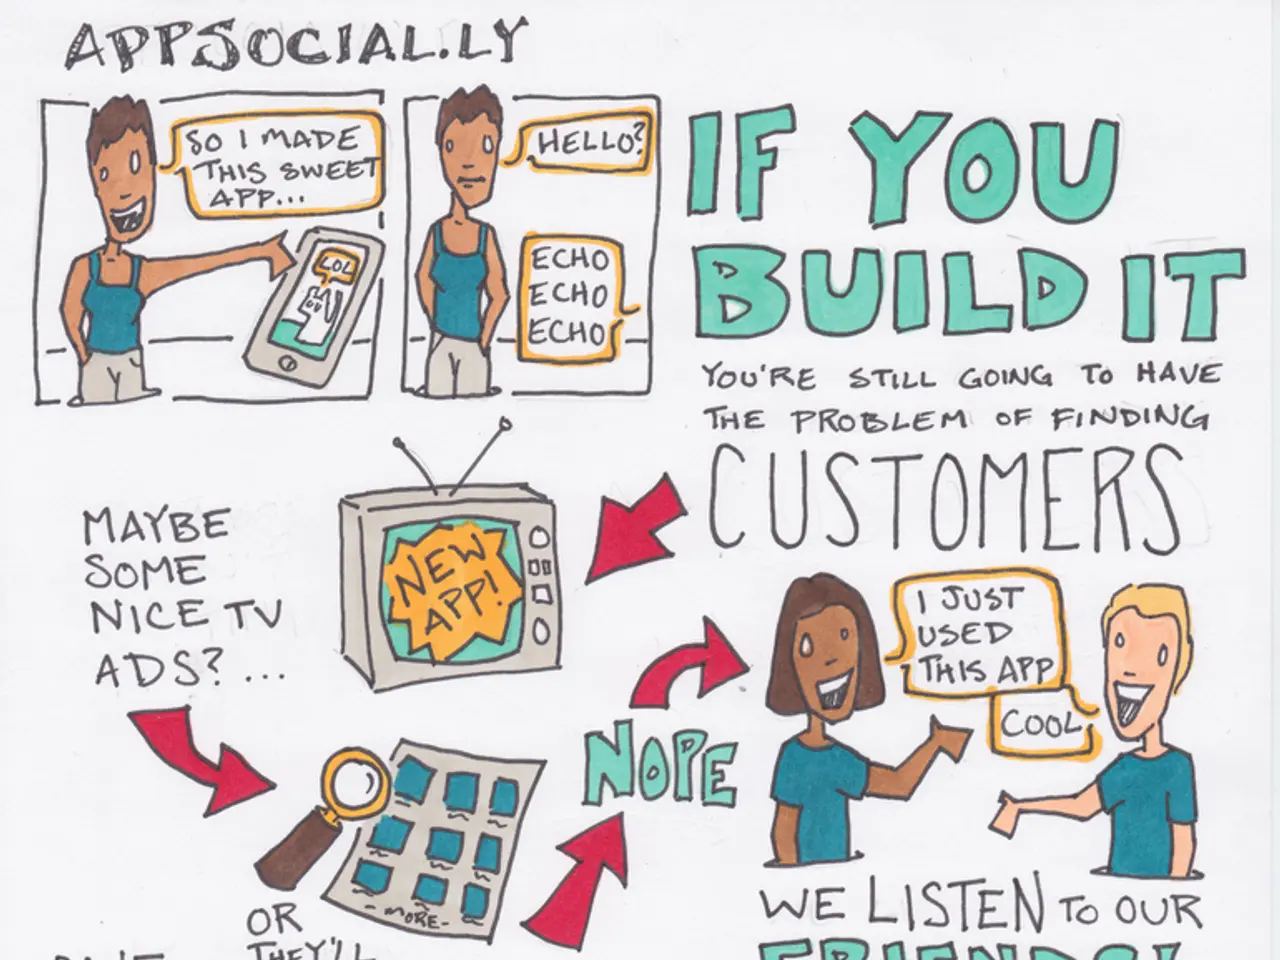 APPSOCIAL.LY
SO I MADE
THIS SWEET
APP...
LOL
HELLO?
ECHO
ECHO
ECHO
IF YOU
BUILD IT
YOU'RE STILL GOING TO HAVE
THE PROBLEM OF FINDING
CUSTOMERS
MAYBE
SOME
NICE TV
ADS?...
NEW
APP!
NOPE
I JUST
USED
THIS APP
COOL
-MORE-
OR
THEY'LL
WE LISTEN TO OUR
FRIENDS!